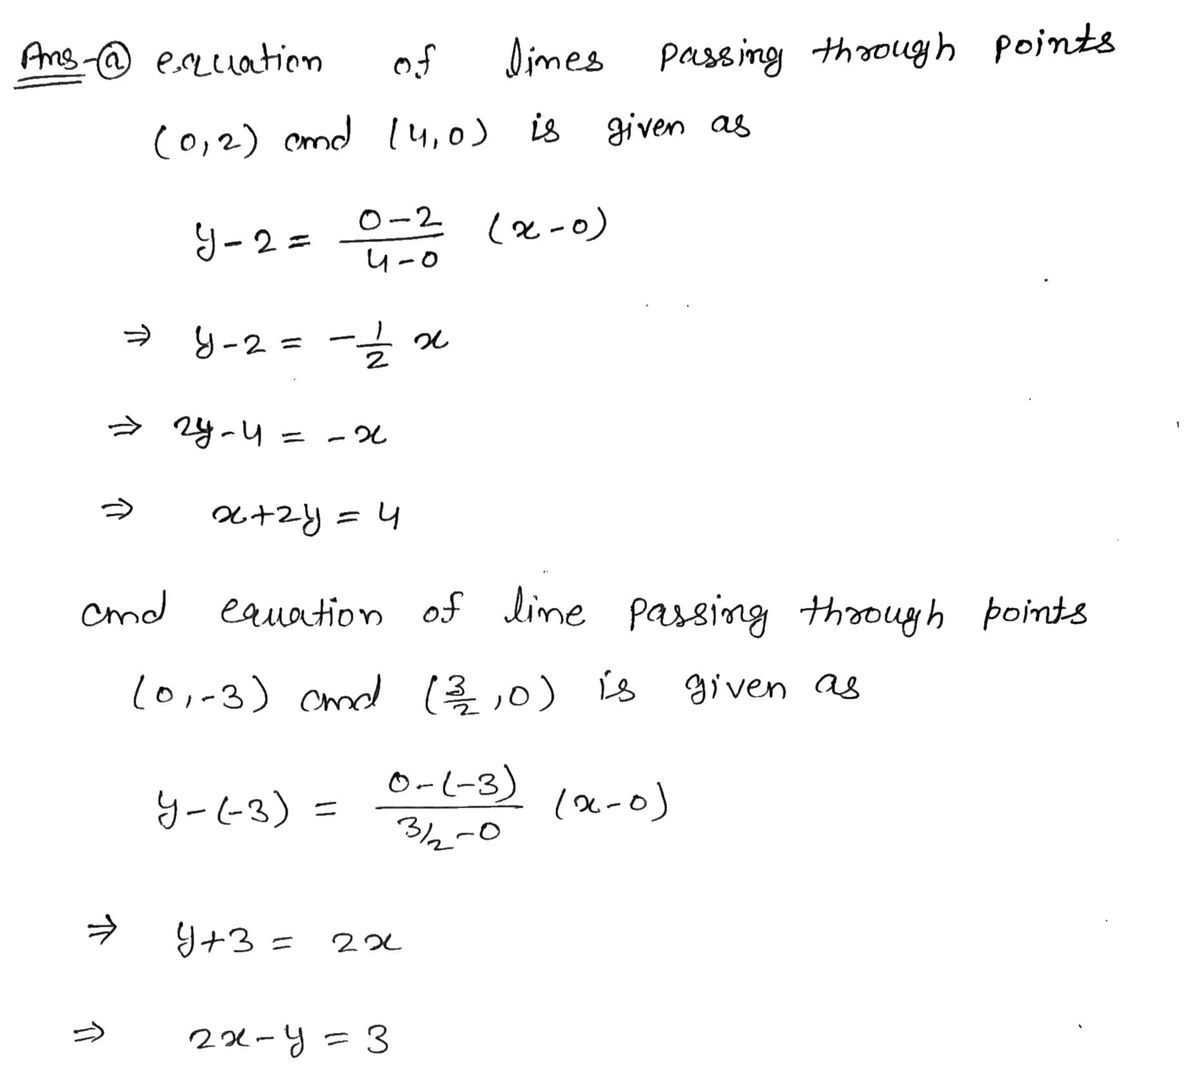 Ans-ⓐ equation of lines passing through points
(0,2) and (4,0) is given as
y-2 = \frac{0-2}{4-0} (x-0)
⇒ y-2 = -\frac{1}{2} x
⇒ 2y-4 = -x
⇒ x+2y = 4
and equation of line passing through points
(0,-3) and (\frac{3}{2},0) is given as
y-(-3) = \frac{0-(-3)}{3/2-0} (x-0)
⇒ y+3 = 2x
⇒ 2x-y = 3